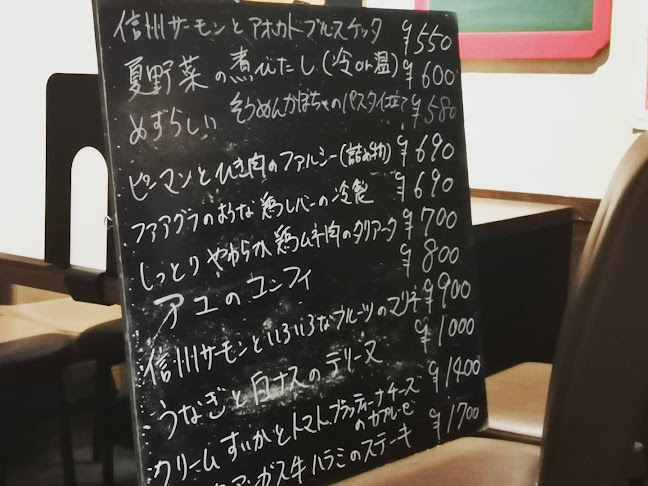 信州サーモンとアボカドブルスケッタ ¥550
夏野菜の煮びたし(冷or温) ¥600
めずらしい そうめんかぼちゃのパスタ仕立て ¥580
ピーマンとひき肉のファルシー(詰め物) ¥690
フォアグラのような鶏レバーの冷製 ¥690
しっとりやわらか鶏ムネ肉のタリアータ ¥700
アユのコンフィ ¥800
信州サーモンといろいろなフルーツのマリネ ¥900
うなぎと白ナスのテリーヌ ¥1000
クリームすいかとトマト、ブラッティーナチーズのカプレーゼ ¥1400
アンガス牛ハラミのステーキ ¥1700